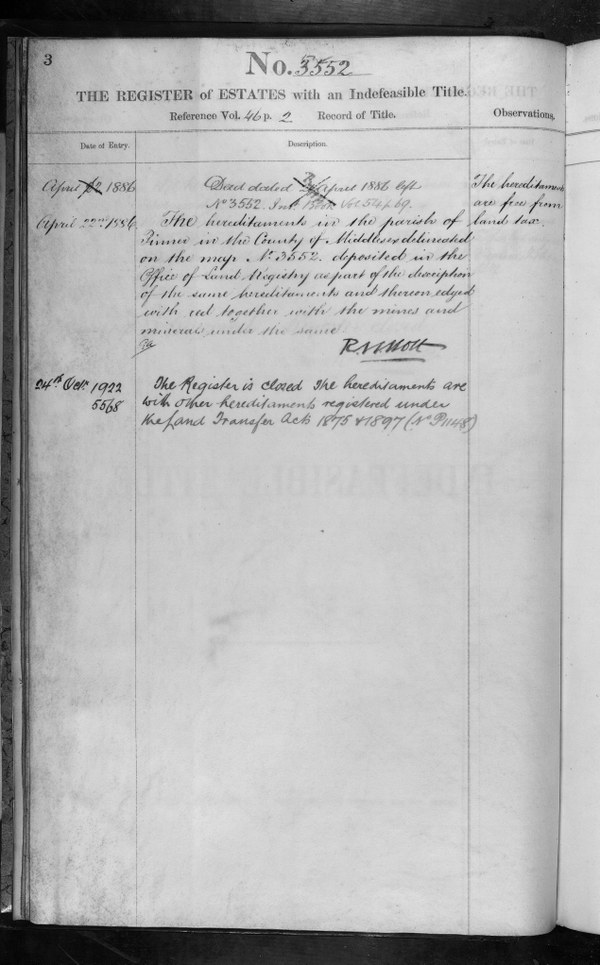 3
No. 3552
THE REGISTER of ESTATES with an Indefeasible Title.
Reference Vol. 46 p. 2 Record of Title.
Observations.
Date of Entry.
Description.
April 12 1886
Deed dated April 1886 left
No 3552. Vol 54 p 69.
The hereditaments
are free from
land tax.
April 22nd 1886
The hereditaments in the parish of
Pinner in the County of Middlesex delineated
on the map No. 3552. deposited in the
Office of Land Registry as part of the description
of the same hereditaments and thereon edged
with red together with the mines and
minerals under the same
24th Octr. 1922
5568
The Register is closed The hereditaments are
with other hereditaments registered under
the Land Transfer Acts 1875 & 1897 (No P1148)